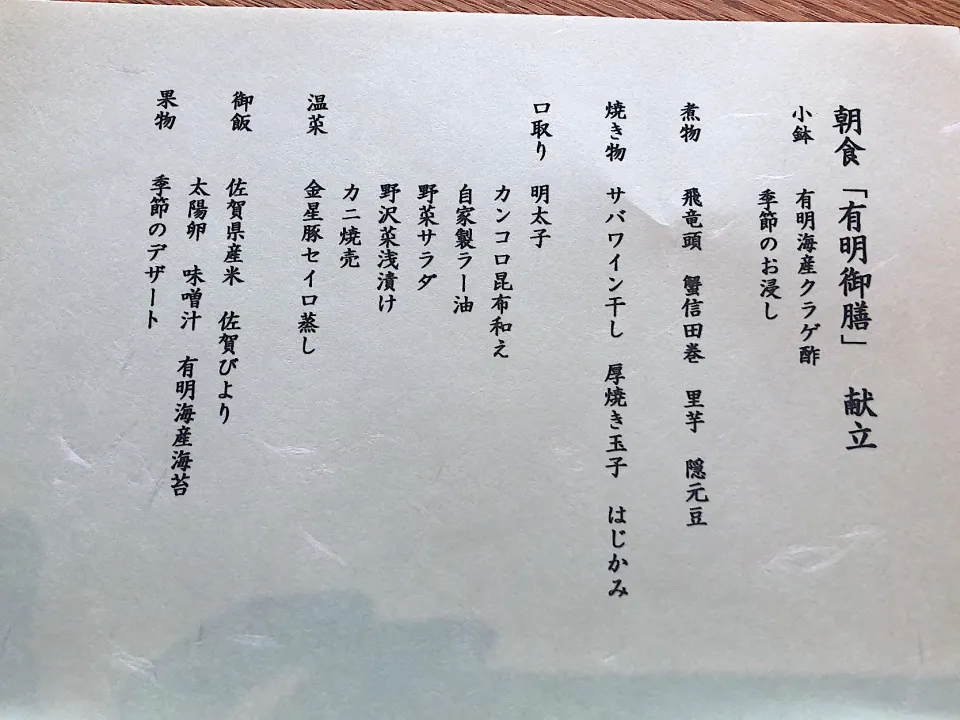 朝食「有明御膳」　献立
小鉢　有明海産クラゲ酢
季節のお浸し
煮物　飛竜頭　蟹信田巻　里芋　隠元豆
焼き物　サバワイン干し　厚焼き玉子　はじかみ
口取り　明太子
カンコロ昆布和え
自家製ラー油
野菜サラダ
野沢菜浅漬け
カニ焼売
温菜　金星豚セイロ蒸し
御飯　佐賀県産米　佐賀びより
太陽卵　味噌汁　有明海産海苔
果物　季節のデザート